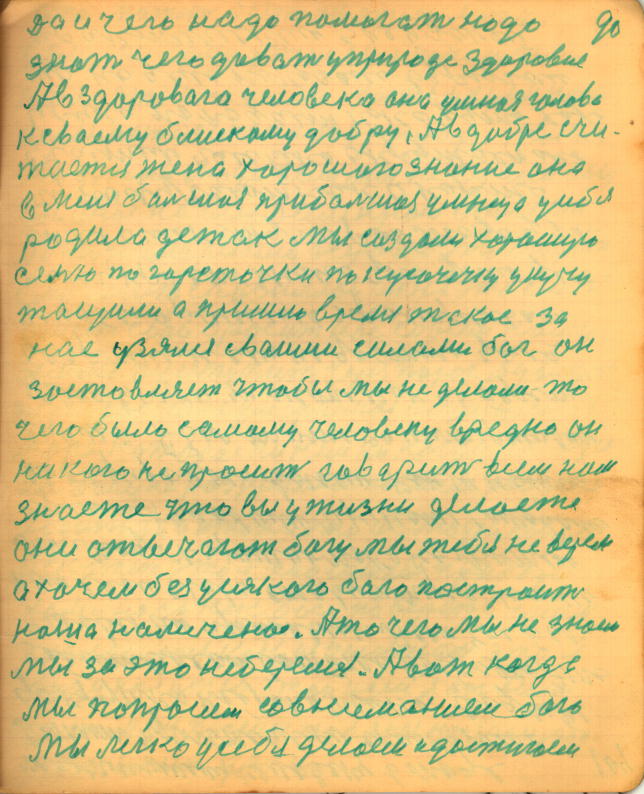 да и чего надо помогат надо 90
знат чего дават уприроде здоровие
Авздоровага человека она умная голова
ксваемублискому добру, Авдобре счи-
тается жена хорошогознание она
в меня балшая прибалшая умница усебя
родила детак мы создали хорошую
семю по горсточки покусочечку укучу
тащили а пришло время такое за
нас узялся сваими силами бог он
заставляет чтобы мы не делали то
чего было самому человеку вредно он
никого непросит говарит всем нам
знаете что вы ужизни делаете
они отвечают богу мы тебя не верем
а хочем без усякого бога построит
наша наличеное. Ато чего мы не знаем
мы за это неберемся. Авот когда
мы попросем совнеманием бога
мы легко усебя делаем идостигаем